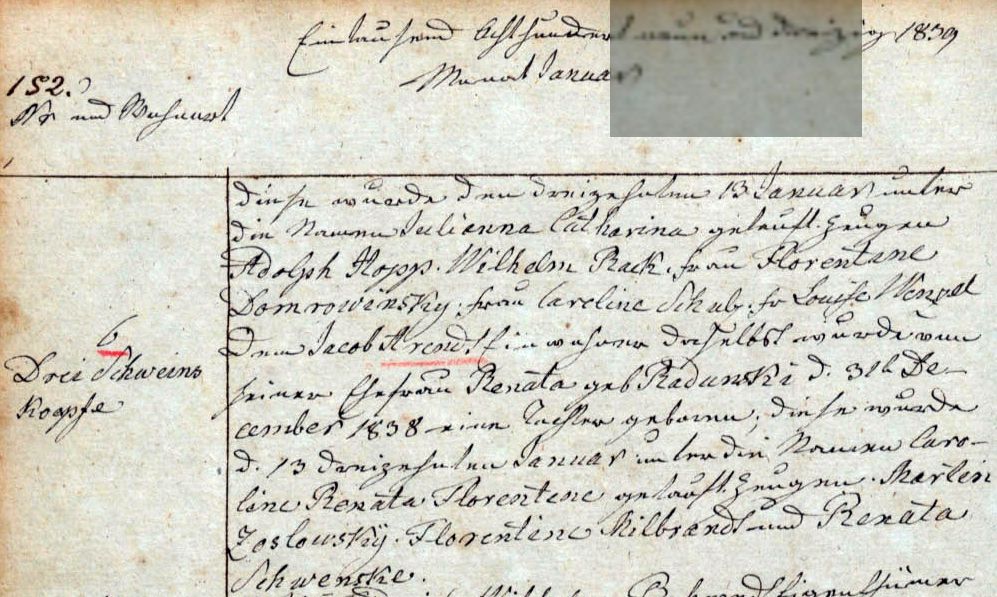 Eintausend Achthundert neun und dreizig 1839
Monat Januar
152.
Nr und Wohnort
diese wurde den dreizehnten 13 Januar unter
die Namen Julianna Catharina getauft. Zeugen
Adolph Hopp. Wilhelm Rack. frau Florentine
Domrowinsky. frau Careline Schulz. fr Louise Wenzel
6
Drei Schweins
Koepfe
Dem Jacob Arend. Einwohner daselbst wurde von
seiner Ehefrau Renata geb Radunski d. 31t De-
cember 1838 eine Tochter geboren, diese wurde
d. 13 dreizehnten Januar unter die Namen Caro-
line Renata Florentine getauft. Zeugen. Martin
Zoslowskÿ. Florentine Milbrandt und Renata
Schwenske.